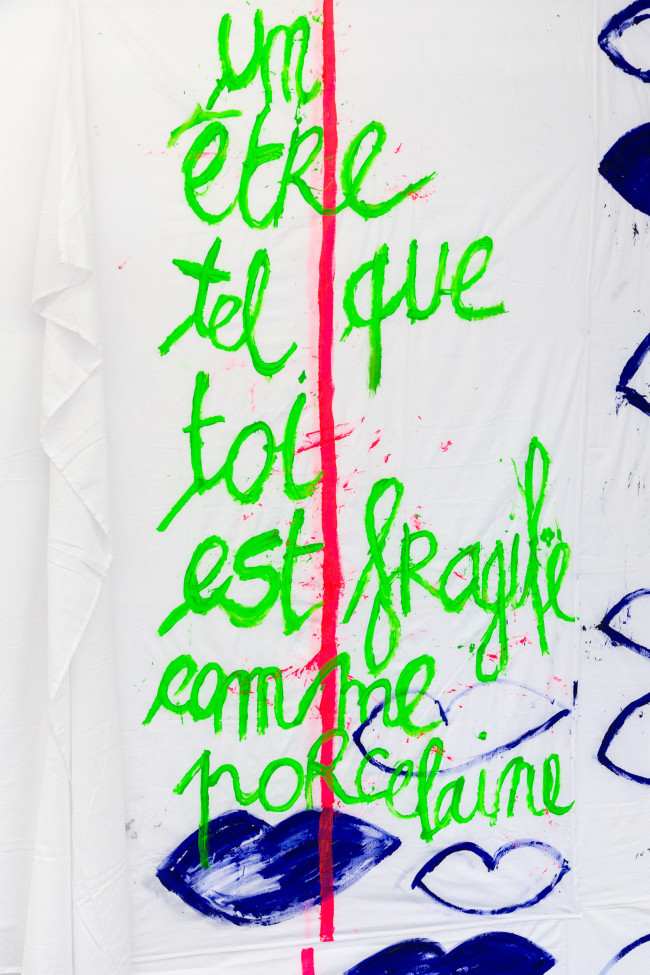 un
être
tel que
toi
est fragile
comme
porcelaine